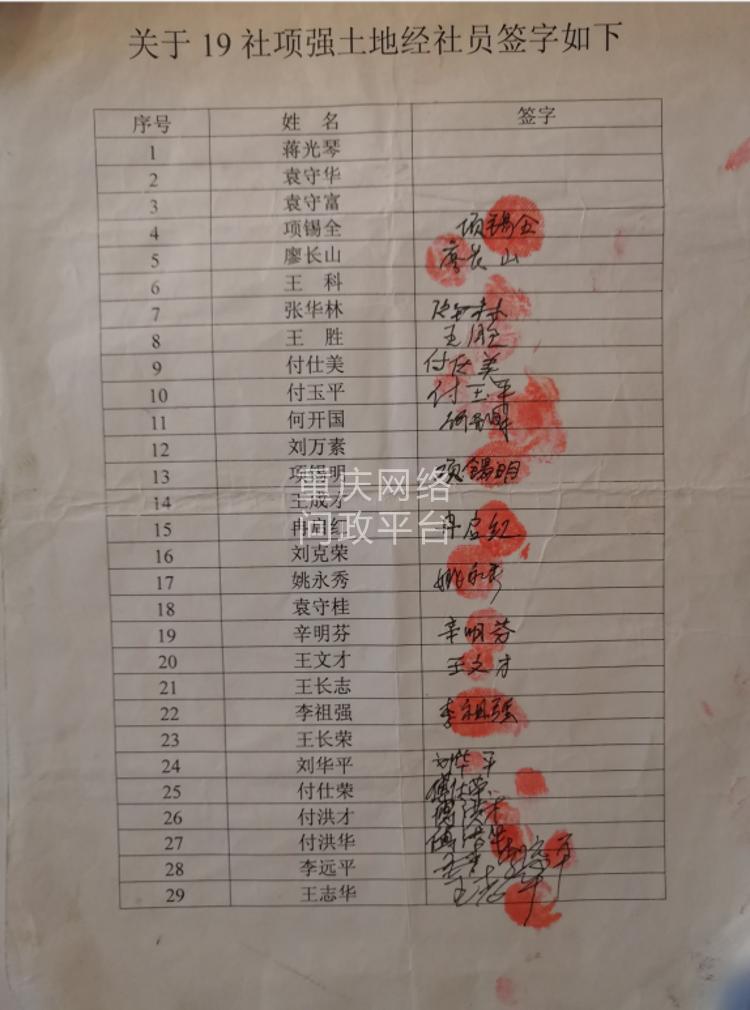 关于 19 社项强土地经社员签字如下
序号 姓 名 签字
1 蒋光琴
2 袁守华
3 袁守富
4 项锡全 项锡全
5 廖长山 廖长山
6 王 科
7 张华林
8 王 胜 王胜
9 付仕美 付仕美
10 付玉平 付玉平
11 何开国
12 刘万素
13 项锡明 项锡明
14 王成才
15 冉启红 冉启红
16 刘克荣
17 姚永秀 姚永秀
18 袁守桂
19 辛明芬 辛明芬
20 王文才 王文才
21 王长志
22 李祖强 李祖强
23 王长荣
24 刘华平 刘华平
25 付仕荣 傅仕荣
26 付洪才 傅洪才
27 付洪华 傅洪华
28 李远平
29 王志华 王志华
重庆网络
问政平台